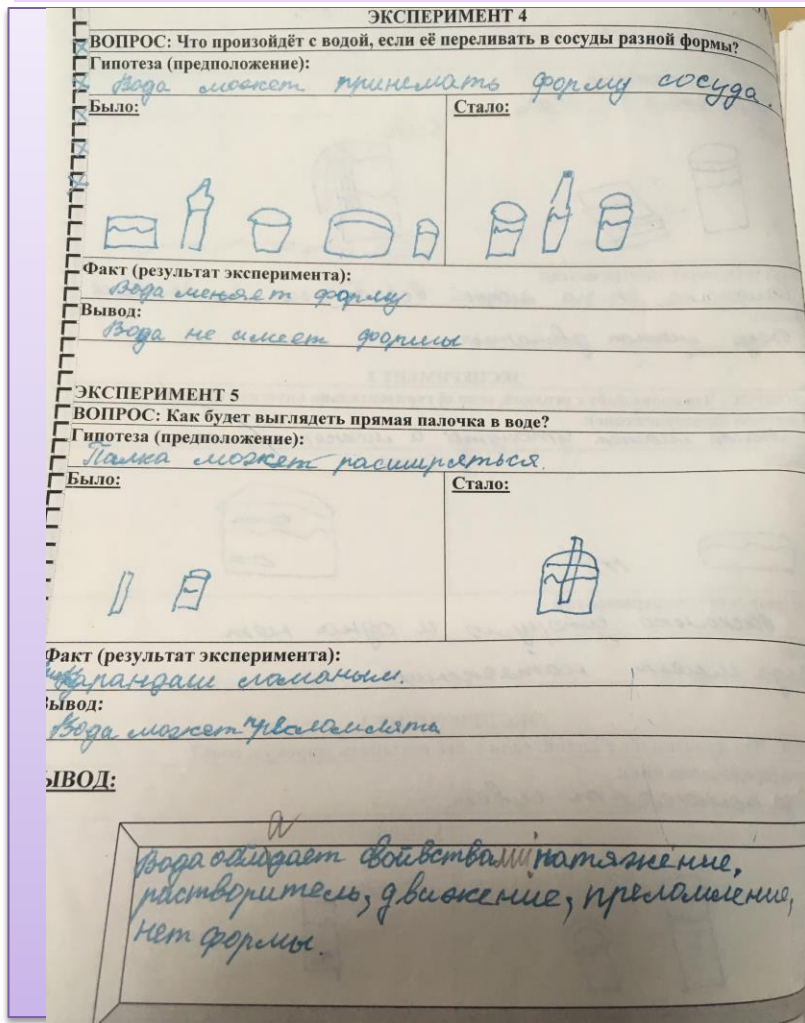 ЭКСПЕРИМЕНТ 4
ВОПРОС: Что произойдёт с водой, если её переливать в сосуды разной формы?
Гипотеза (предположение):
Вода может принемать форму сосуда.
Было:
Стало:
Факт (результат эксперимента):
Вода меняет форму
Вывод:
Вода не имеет формы
ЭКСПЕРИМЕНТ 5
ВОПРОС: Как будет выглядеть прямая палочка в воде?
Гипотеза (предположение):
Палка может расширяться.
Было:
Стало:
Факт (результат эксперимента):
Карандаш ломаным.
Вывод:
Вода может
ЫВОД:
а
Вода обладает свойвствами натяжение,
растворитель, движение, преломление,
нет формы.